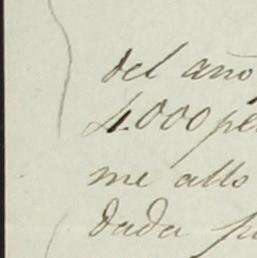 del año
4.000 pe
me allo
dada p